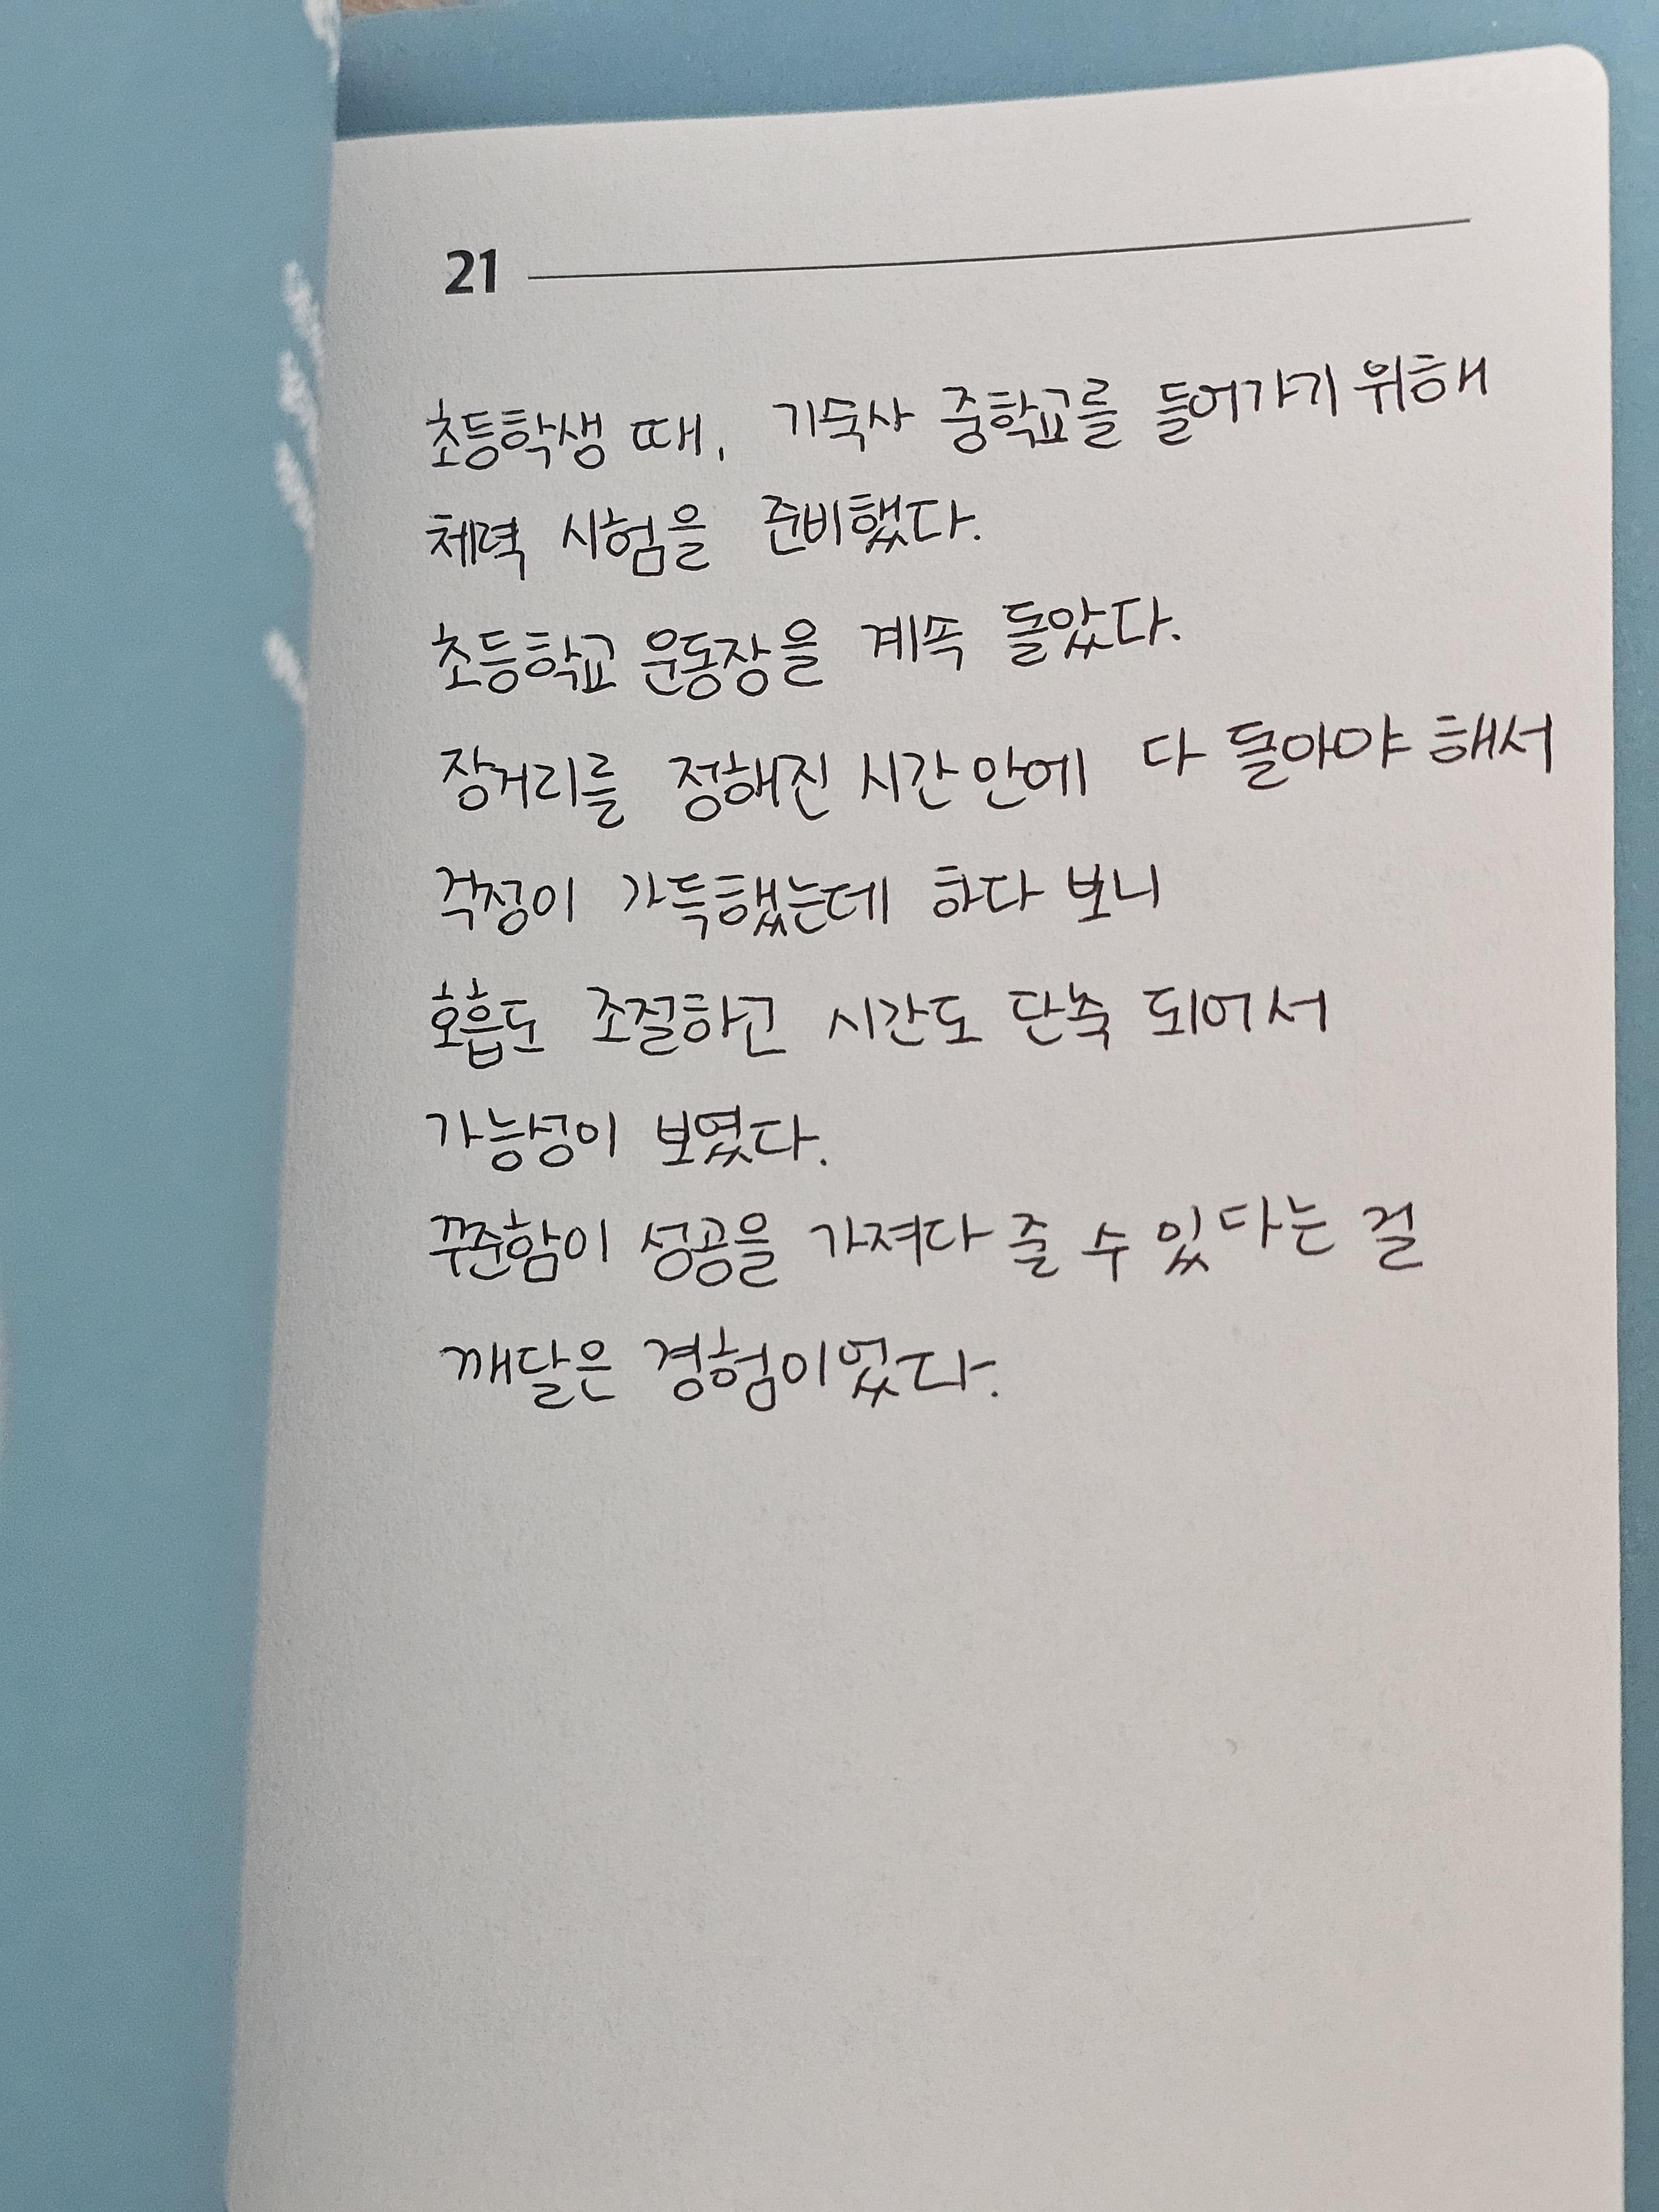 21
초등학생 때, 기숙사 중학교를 들어가기 위해
체력 시험을 준비했다.
초등학교 운동장을 계속 돌았다.
장거리를 정해진 시간 안에 다 돌아야 해서
걱정이 가득했는데 하다 보니
호흡도 조절하고 시간도 단축 되어서
가능성이 보였다.
꾸준함이 성공을 가져다 줄 수 있다는 걸
깨달은 경험이었다.